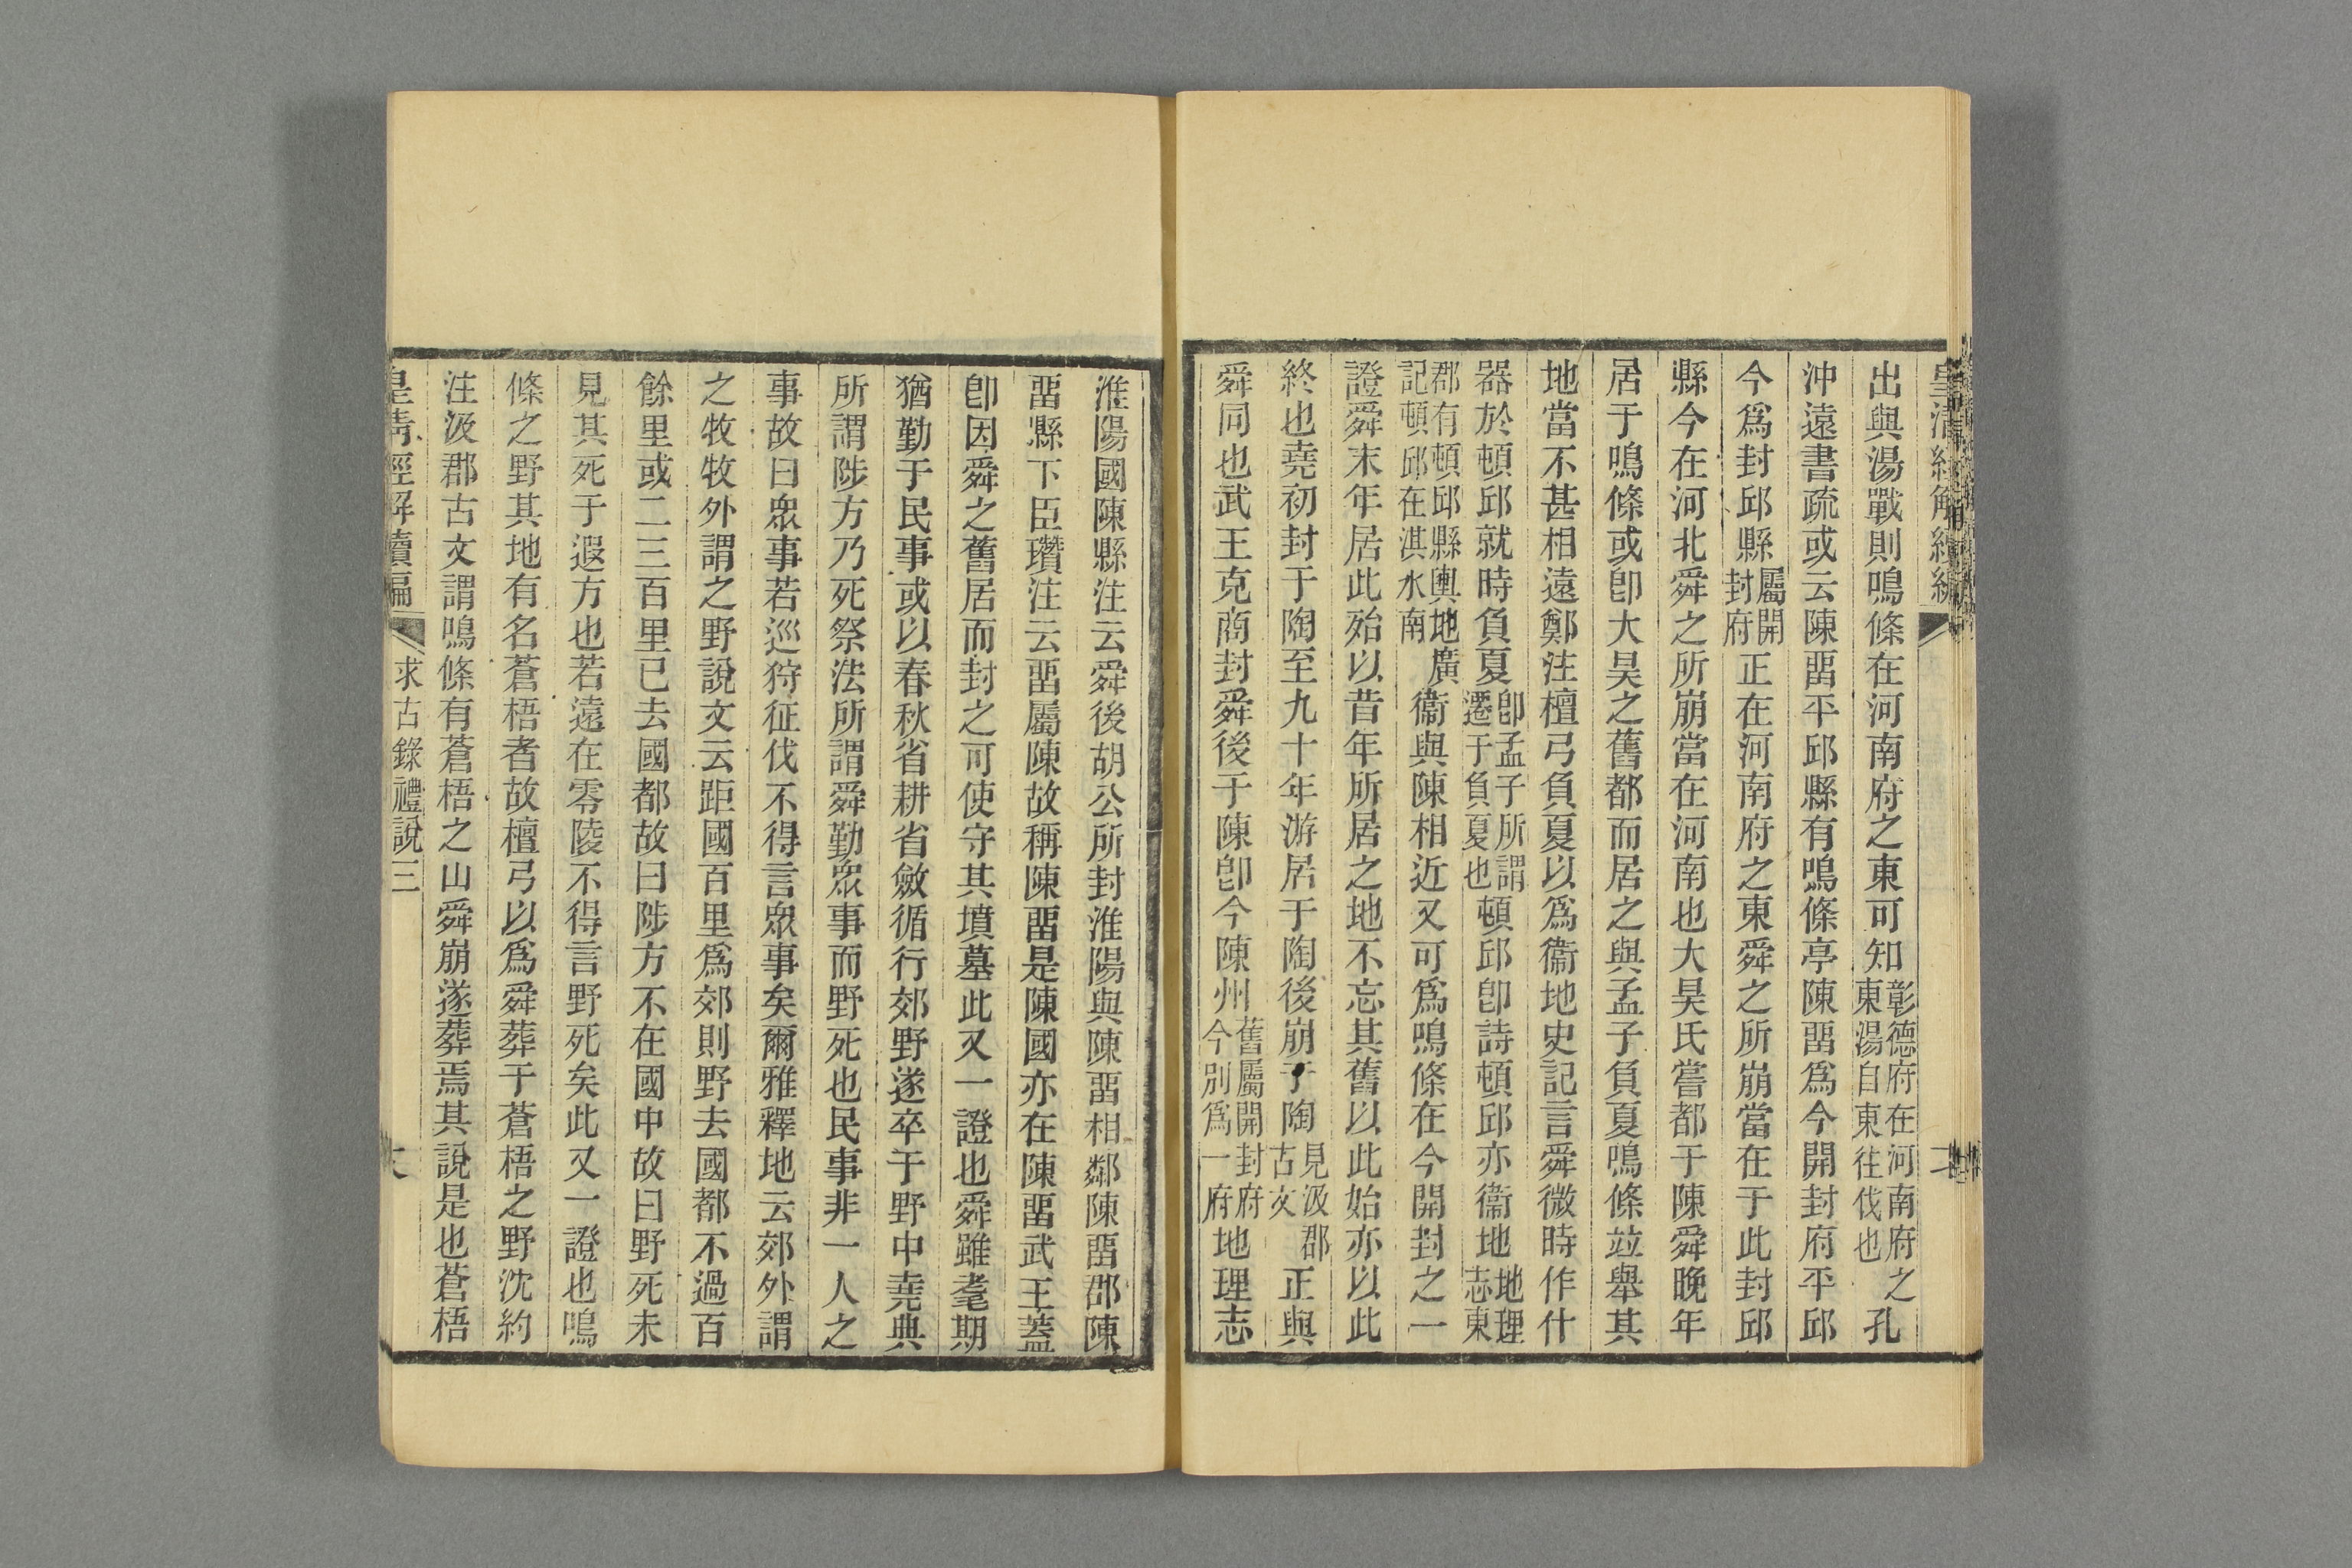 皇清經解續編
出與湯戰則鳴條在河南府之東可知彰德府在河南府之東湯自東往伐也孔
沖遠書疏或云陳畱平邱縣有鳴條亭陳畱爲今開封府平邱
今爲封邱縣屬開封府正在河南府之東舜之所崩當在于此封邱
縣今在河北舜之所崩當在河南也大昊氏嘗都于陳舜晚年
居于鳴條或卽大昊之舊都而居之與孟子負夏鳴條竝舉其
地當不甚相遠鄭注檀弓負夏以爲衞地史記言舜微時作什
器於頓邱就時負夏卽孟子所謂遷于負夏也頓邱卽詩頓邱亦衞地地理志東
郡有頓邱縣輿地廣記頓邱在淇水南衞與陳相近又可爲鳴條在今開封之一
證舜末年居此殆以昔年所居之地不忘其舊以此始亦以此
終也堯初封于陶至九十年游居于陶後崩于陶見汲郡古文正與
舜同也武王克商封舜後于陳卽今陳州舊屬開封府今別爲一府地理志
淮陽國陳縣注云舜後胡公所封淮陽與陳畱相鄰陳畱郡陳
畱縣下臣瓚注云畱屬陳故稱陳畱是陳國亦在陳畱武王蓋
卽因舜之舊居而封之可使守其墳墓此又一證也舜雖耄期
猶勤于民事或以春秋省耕省斂循行郊野遂卒于野中堯典
所謂陟方乃死祭法所謂舜勤眾事而野死也民事非一人之
事故曰眾事若巡狩征伐不得言眾事矣爾雅釋地云郊外謂
之牧牧外謂之野說文云距國百里爲郊則野去國都不過百
餘里或二三百里已去國都故曰陟方不在國中故曰野死未
見其死于遐方也若遠在零陵不得言野死矣此又一證也鳴
條之野其地有名蒼梧者故檀弓以爲舜葬于蒼梧之野沈約
注汲郡古文謂鳴條有蒼梧之山舜崩遂葬焉其說是也蒼梧
皇清經解續編 求古錄禮說三